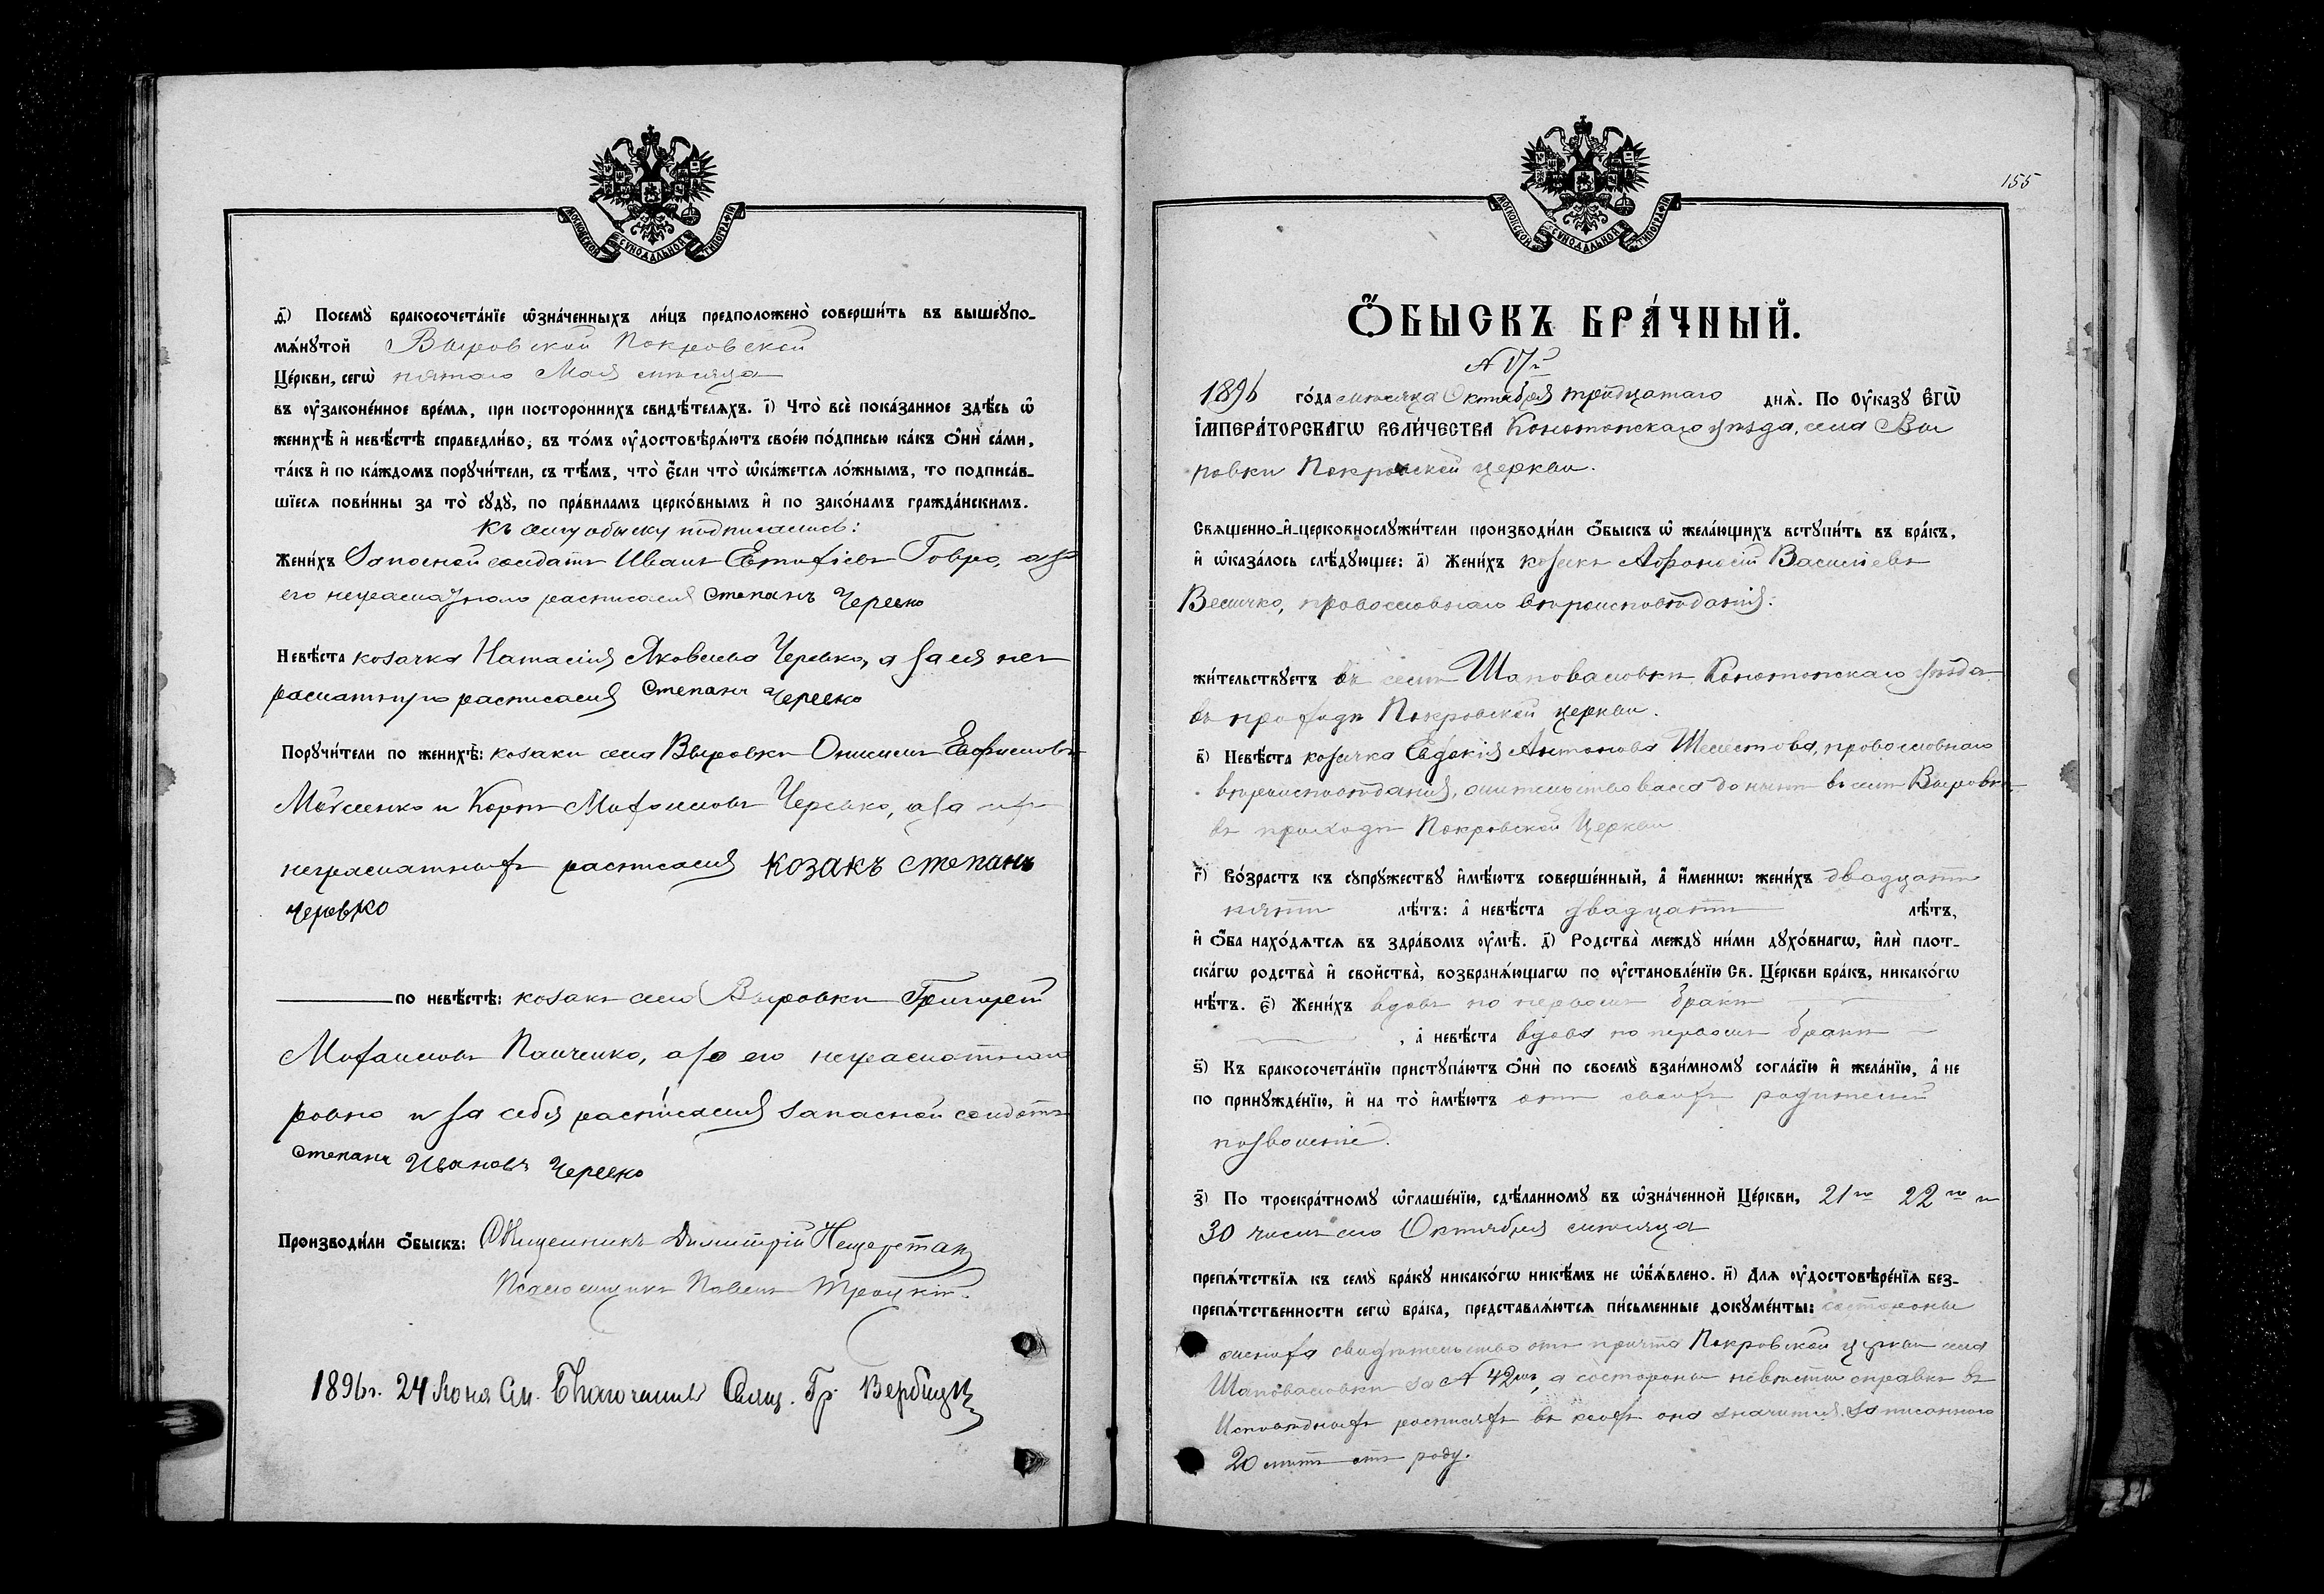 МОСКОВСКОЙ СѴНОДАЛЬНОЙ ТИПОГРАФІИ
д҃і) Посемꙋ̀ бракосочета́нїе ѡ҆зна́ченныхъ ли́цъ предположено̀ соверши́ть въ вышеꙋпо-
мѧ́нꙋтой Выровской Покровской
Це́ркви, сегѡ̀ пятаго Мая месяца
въ ᲂу҆законе́нное вре́мѧ, при постороннихъ свидѣ́телѧхъ. і҃) Что̀ всѐ пока́занное здѣ́сь ѡ҆
женихѣ̀ и҆ невѣ́стѣ справедли́во, въ то́мъ ᲂу҆достовѣрѧ́ютъ свое́ю по́дписью ка́къ ѻ҆нѝ са́ми,
та́къ и҆ по ка́ждомъ порꙋчи́тели, съ тѣ́мъ, что̀ є҆́сли что̀ ѡ҆ка́жетсѧ ло́жнымъ, то подписа́в-
шїесѧ пови́нны за то̀ сꙋдꙋ̀, по пра́виламъ церко́внымъ и҆ по зако́намъ гражда́нскимъ.
Къ сему обыску подписались:
Жени́хъ Запасной солдатъ Иванъ Евтифіевъ Говра, а за
его неграмотного расписался Степанъ Черевко
Невѣ́ста козачка Наталія Яковлева Черевко, а за ея не
расписался Степанъ Черевко
Порꙋчи́тели по женихѣ̀: козаки села Выровки Онисимъ
и Михайловъ Черевко, а за ихъ
неграмотныхъ расписался козакъ степанъ
Черевко
по невѣ́стѣ: козакъ села Выровки Григорій
Михайловъ Панченко, а за его неграмотнаго
равно и за себя расписался запасной солдатъ
Степанъ Ивановъ Черевко
Производи́ли ѻ҆́быскъ: Священникъ Димитрій
Псаломщикъ Павелъ Троцкій.
1896 г. 24 Іюня См. Благочинный Свящ. Гр. Вербицкій
155
МОСКОВСКОЙ СѴНОДАЛЬНОЙ ТИПОГРАФІИ
Ѻ҆́БЫСКЪ БРА́ЧНЫЙ.
1896 го́да месяца Октября тридцатаго днѧ̀. По ᲂу҆ка́зꙋ Є҆ГѠ̀
І҆МПЕРА́ТОРСКАГѠ ВЕЛИ́ЧЕСТВА Конотопскаго уѣзда, села Вы
ровки Покровской церкви.
Свѧщенно-и҆-церковнослꙋжи́тели производи́ли ѻ҆́быскъ ѡ҆ жела́ющихъ встꙋпи́ть въ бра́къ,
и҆ ѡ҆каза́лось слѣ́дꙋющее: а҃) Жени́хъ козакъ Афонасій Васильевъ
Величко, православнаго вѣроисповѣданія:
жи́тельствꙋетъ въ селѣ Шаповаловки Конотопскаго уѣзда
въ приходѣ Покровской церкви.
в҃) Невѣ́ста козачка Евдокія Антонова Шелестова, православнаго
вѣроисповѣданія, жительствовала до нынѣ въ селѣ Выровкѣ
въ приходѣ Покровской Церкви
г҃) Во́зрастъ къ сꙋпрꙋ́жествꙋ и҆мѣ́ютъ соверше́нный, а҆ и҆́меннѡ: жени́хъ двадцати
пяти лѣ́тъ: а҆ невѣ́ста двадцати лѣ́тъ,
и҆ ѻ҆́ба нахо́дѧтсѧ въ здра́вомъ ᲂу҆мѣ̀. д҃) Родства̀ междꙋ̀ ни́ми дꙋхо́внагѡ, и҆лѝ плот-
ска́гѡ родства̀ и҆ свойства̀, возбранѧ́ющагѡ по ᲂу҆становле́нїю Св. Це́ркви бра́къ, никако́гѡ
нѣ́тъ. є҃) Жени́хъ вдовъ по первомъ бракѣ
, а҆ невѣ́ста вдова по первомъ бракѣ
ѕ҃) Къ бракосочета́нїю пристꙋпа́ютъ ѻ҆нѝ по своемꙋ̀ взаи́мномꙋ согла́сїю и҆ жела́нїю, а҆ не
по принꙋжде́нїю, и҆ на то̀ и҆мѣ́ютъ отъ своихъ родителей
позволеніе.
з҃) По троекра́тномꙋ ѡ҆глаше́нїю, сдѣ́ланномꙋ въ ѡ҆зна́ченной Це́ркви, 21го 22го и
30 числа сего Октября месяца
препѧ́тствїѧ къ семꙋ̀ бра́кꙋ никако́гѡ никѣ́мъ не ѡ҆б̾ѧ́влено. и҃) Длѧ ᲂу҆достовѣре́нїѧ без-
препѧ́тственности сегѡ̀ бра́ка, представлѧ́ютсѧ пи́сьменные докꙋме́нты: со стороны
жениха свидѣтельство отъ причта Покровской церкви села
Шаповаловки за № 42мъ, а со стороны невѣсты справка въ
Исповѣдныхъ росписяхъ въ коихъ она значится записанною
20 лѣтъ отъ роду.